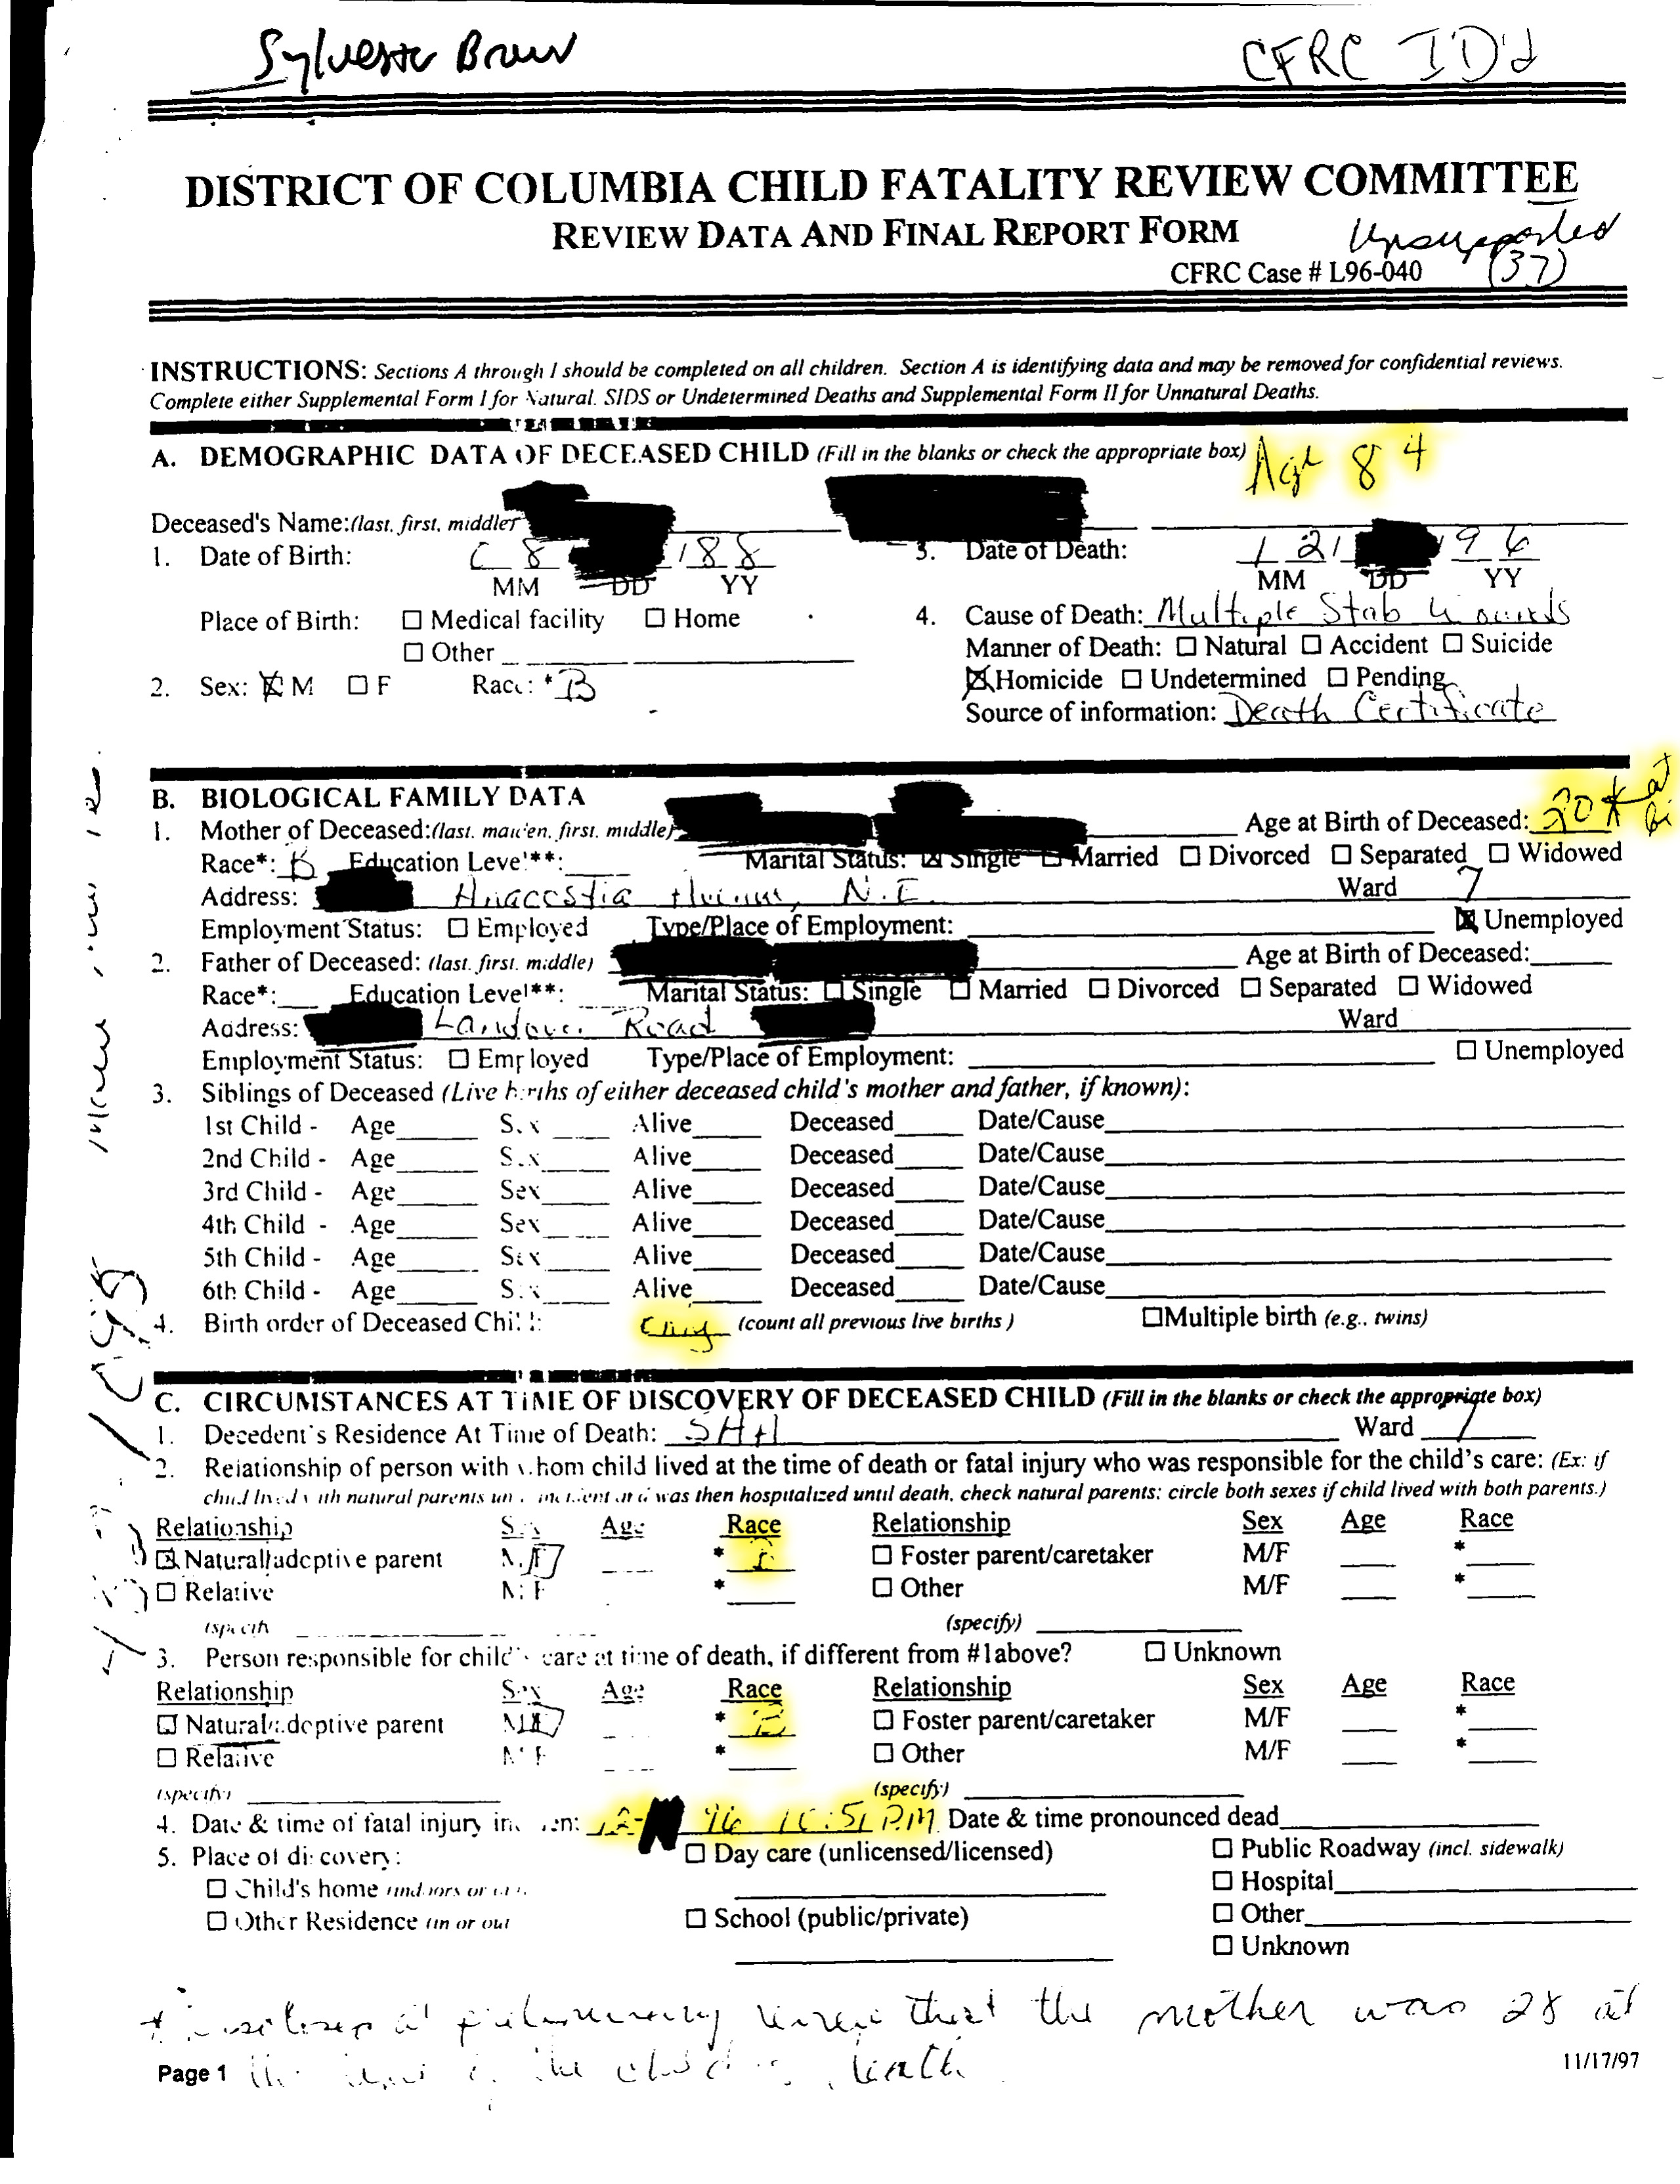 Sylvester Brown
CFRC ID'd
DISTRICT OF COLUMBIA CHILD FATALITY REVIEW COMMITTEE
REVIEW DATA AND FINAL REPORT FORM
Unsupported
CFRC Case # L96-040 (37)
INSTRUCTIONS: Sections A through I should be completed on all children. Section A is identifying data and may be removed for confidential reviews.
Complete either Supplemental Form I for Natural. SIDS or Undetermined Deaths and Supplemental Form II for Unnatural Deaths.
A. DEMOGRAPHIC DATA OF DECEASED CHILD (Fill in the blanks or check the appropriate box) Age 8 4
Deceased's Name:(last, first, middle)
1. Date of Birth: 08 / 88 3. Date of Death: 12/ 96
MM DD YY MM DD YY
Place of Birth: ☐ Medical facility ☐ Home 4. Cause of Death: Multiple Stab Wounds
☐ Other Manner of Death: ☐ Natural ☐ Accident ☐ Suicide
2. Sex: ☒ M ☐ F Race: * B ☒ Homicide ☐ Undetermined ☐ Pending
Source of information: Death Certificate
B. BIOLOGICAL FAMILY DATA
1. Mother of Deceased:(last, maiden, first, middle) Age at Birth of Deceased: 20 * at
Race*: B Education Level**: Marital Status: ☒ Single ☐ Married ☐ Divorced ☐ Separated ☐ Widowed
Address: Anacostia Avenue, N.E. Ward 7
Employment Status: ☐ Employed Type/Place of Employment: ☒ Unemployed
2. Father of Deceased: (last, first, middle) Age at Birth of Deceased:
Race*: Education Level**: Marital Status: ☐ Single ☐ Married ☐ Divorced ☐ Separated ☐ Widowed
Address: Landover Road Ward
Employment Status: ☐ Employed Type/Place of Employment: ☐ Unemployed
3. Siblings of Deceased (Live births of either deceased child's mother and father, if known):
1st Child - Age Sex Alive Deceased Date/Cause
2nd Child - Age Sex Alive Deceased Date/Cause
3rd Child - Age Sex Alive Deceased Date/Cause
4th Child - Age Sex Alive Deceased Date/Cause
5th Child - Age Sex Alive Deceased Date/Cause
6th Child - Age Sex Alive Deceased Date/Cause
4. Birth order of Deceased Child: (count all previous live births) ☐Multiple birth (e.g., twins)
C. CIRCUMSTANCES AT TIME OF DISCOVERY OF DECEASED CHILD (Fill in the blanks or check the appropriate box)
1. Decedent's Residence At Time of Death: Ward 7
2. Relationship of person with whom child lived at the time of death or fatal injury who was responsible for the child's care: (Ex: if
child lived with natural parents until incident and was then hospitalized until death, check natural parents; circle both sexes if child lived with both parents.)
Relationship Sex Age Race Relationship Sex Age Race
☒ Natural/adoptive parent M/F * ☐ Foster parent/caretaker M/F *
☐ Relative M/F * ☐ Other M/F *
(specify) (specify)
3. Person responsible for child's care at time of death, if different from #1above? ☐ Unknown
Relationship Sex Age Race Relationship Sex Age Race
☐ Natural/adoptive parent M/F * B ☐ Foster parent/caretaker M/F *
☐ Relative M/F * ☐ Other M/F *
(specify) (specify)
4. Date & time of fatal injury incident: 12- 96 PM Date & time pronounced dead
5. Place of discovery: ☐ Day care (unlicensed/licensed) ☐ Public Roadway (incl. sidewalk)
☐ Child's home ☐ Hospital
☐ Other Residence (in or out ☐ School (public/private) ☐ Other
☐ Unknown
that the mother was 28 at
Page 1 the death 11/17/97